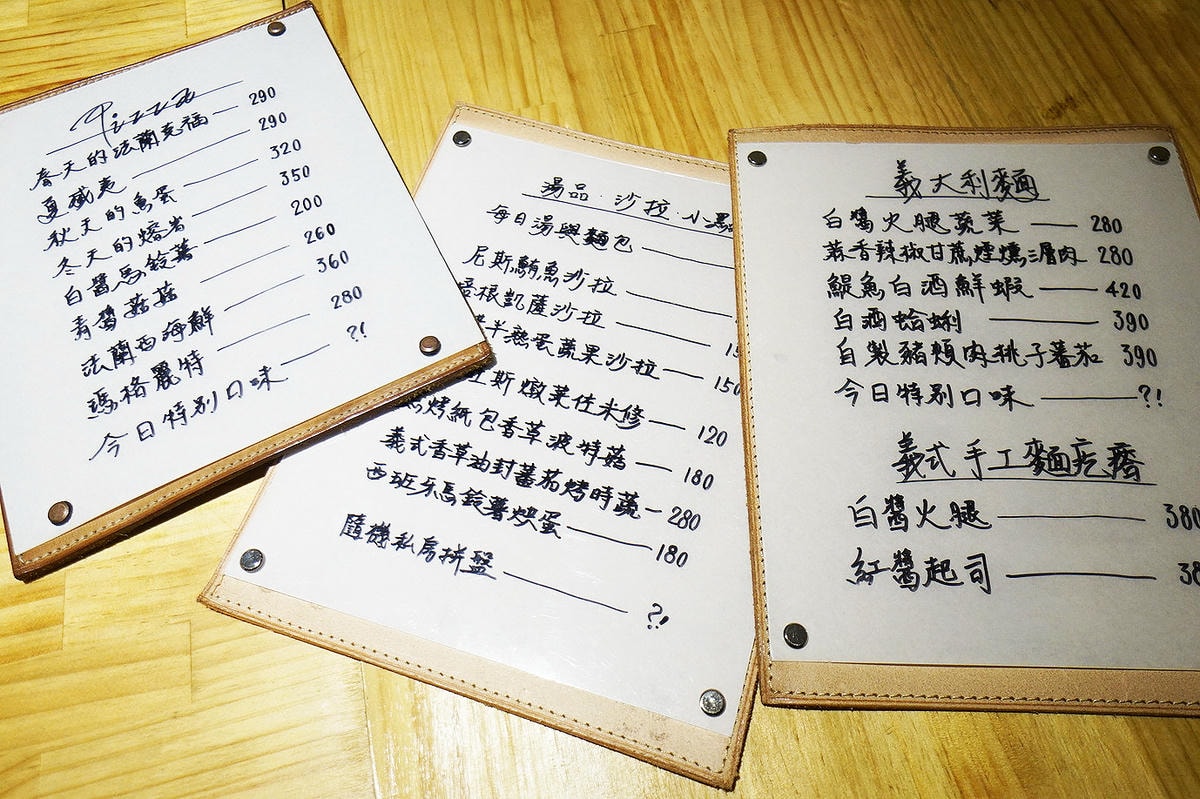 Pizza
春天的法蘭克福 290
夏威夷 290
秋天的薰蛋 320
冬天的熔岩 350
白醬馬鈴薯 200
青醬菇菇 260
法蘭西海鮮 360
瑪格麗特 280
今日特別口味 ?!
湯品·沙拉·小點
每日湯與麵包
尼斯鮪魚沙拉
培根凱薩沙拉
半熟蛋蔬果沙拉 150
斯燉菜佐米修 120
烤紙包香草波特菇 180
義式香草油封蕃茄烤時蔬 280
西班牙馬鈴薯烘蛋 180
隨機私房拼盤 ?!
義大利麵
白醬火腿蔬菜 280
蒜香辣椒甘蔗煙燻三層肉 280
鯷魚白酒鮮蝦 420
白酒蛤蜊 390
自製豬頰肉桃子蕃茄 390
今日特別口味 ?!
義式手工麵疙瘩
白醬火腿 380
紅醬起司 38